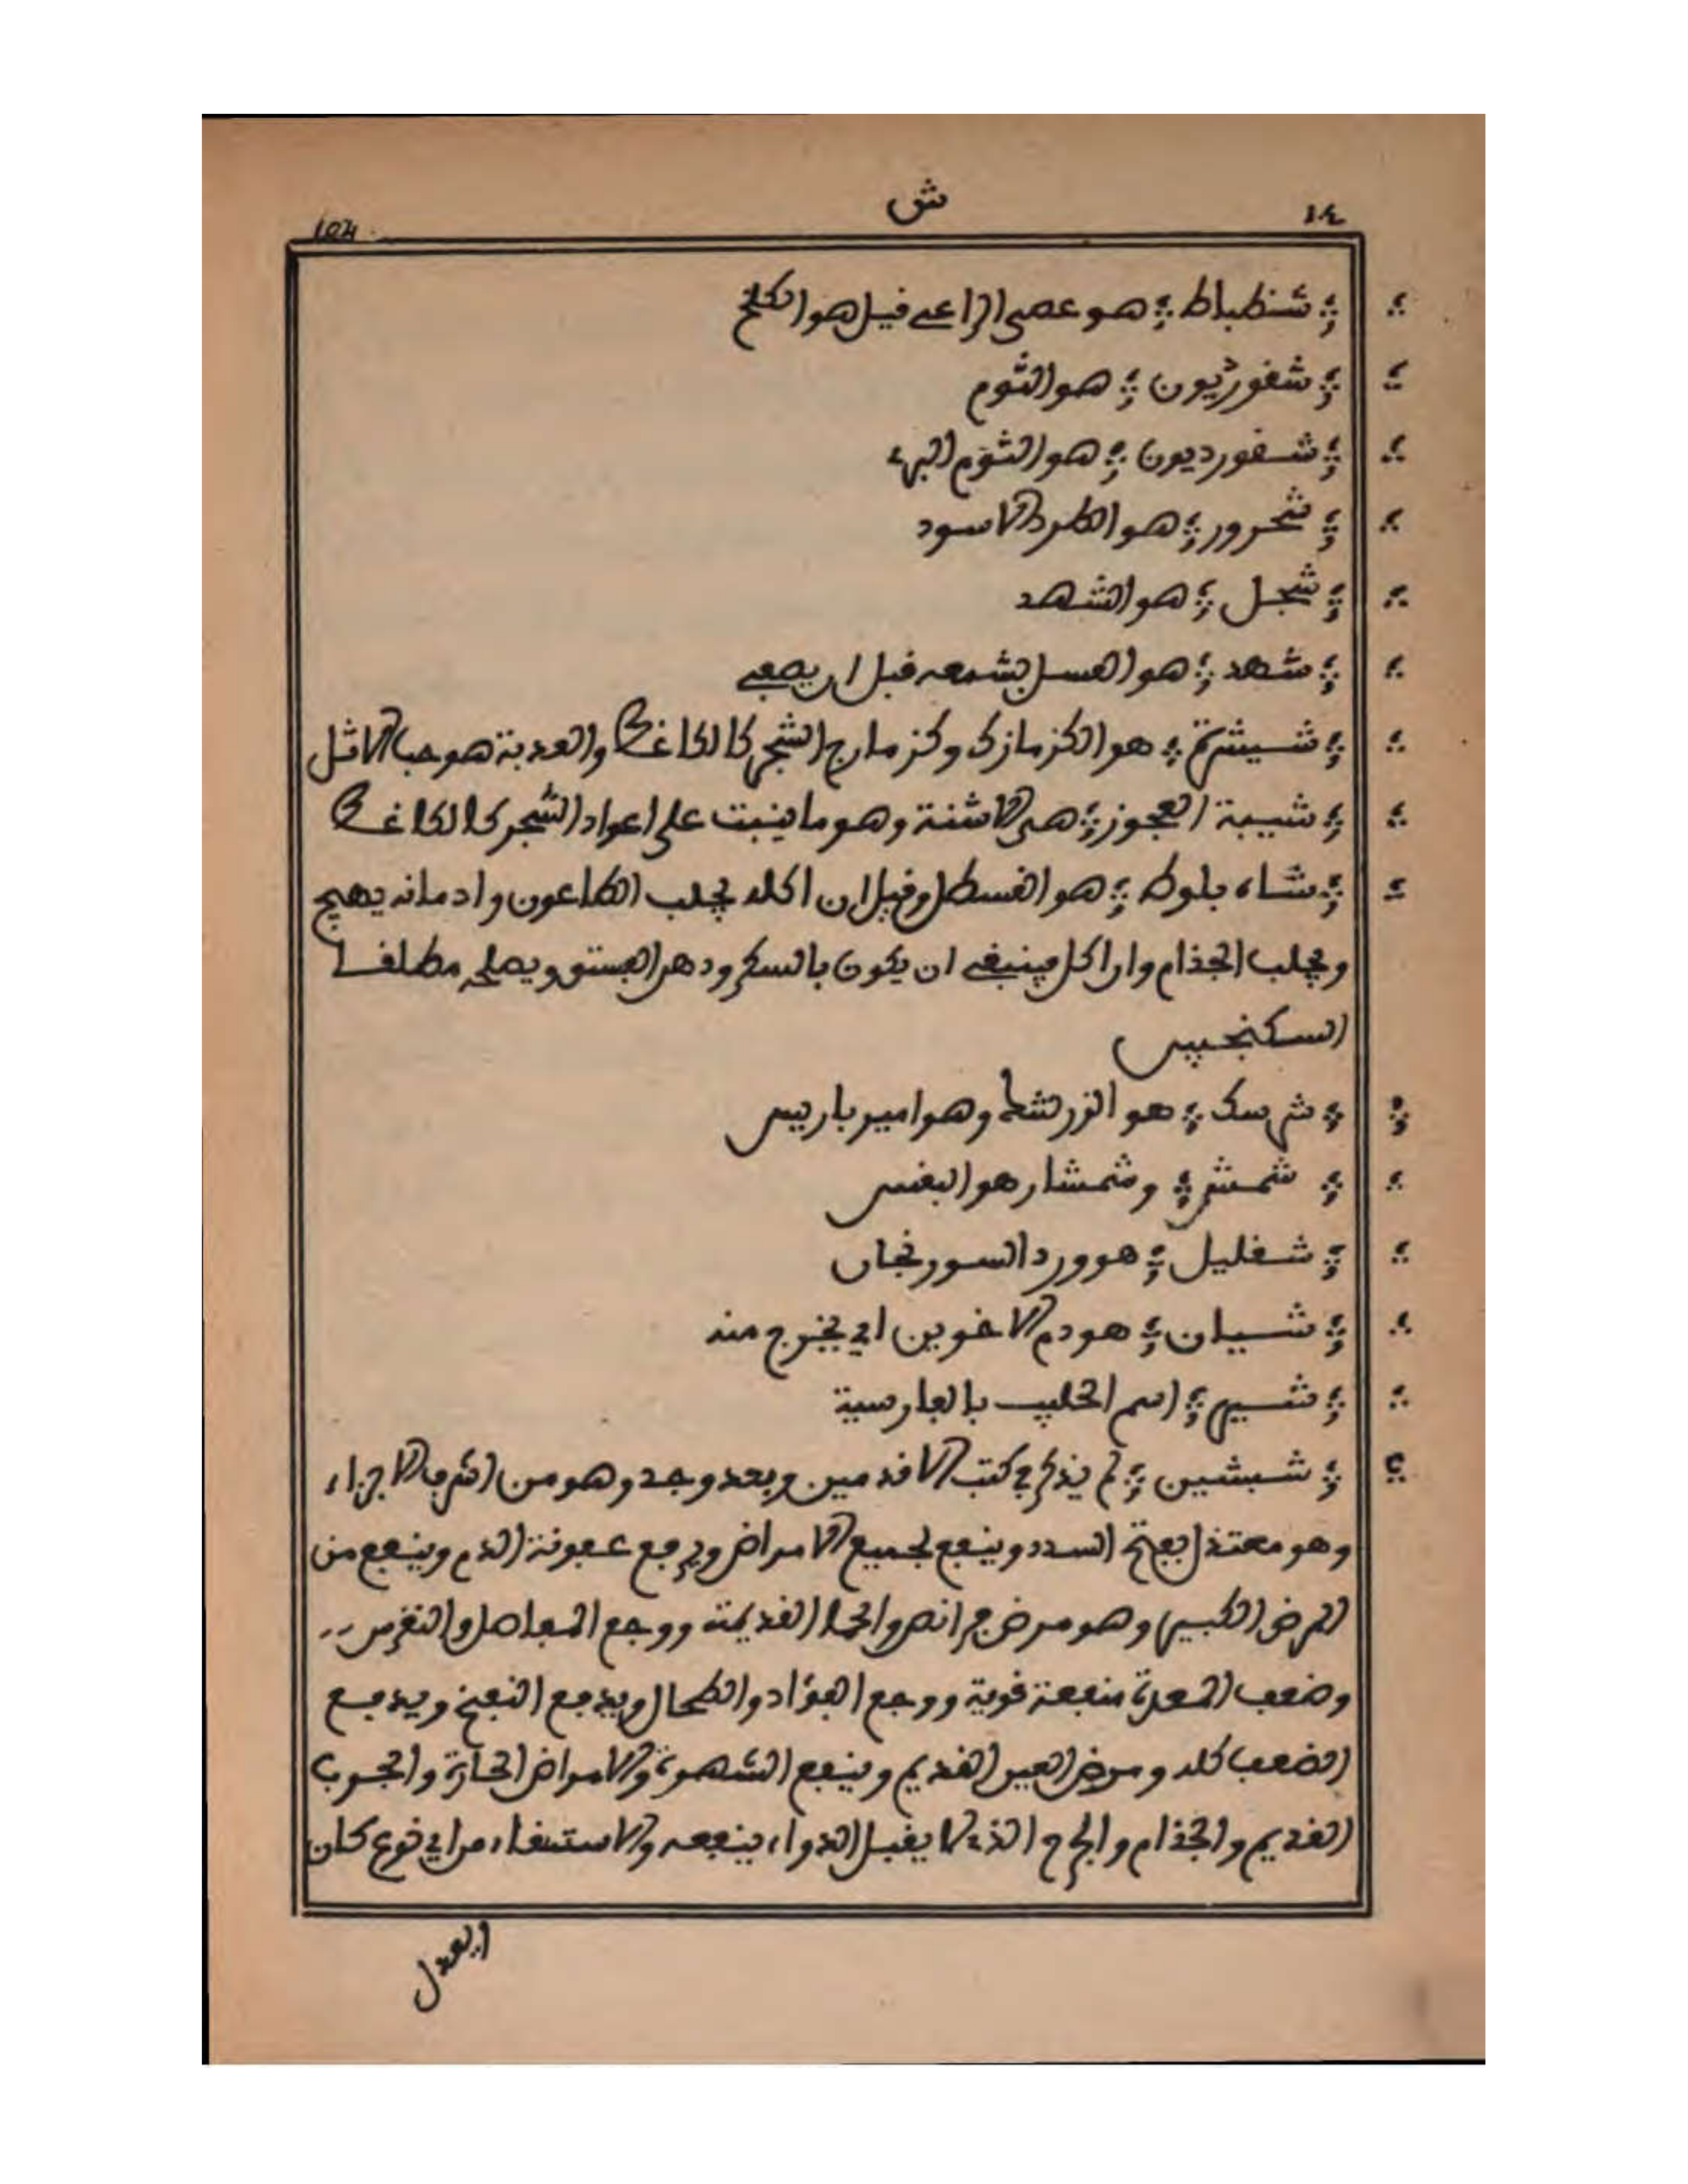 104 ش ١٤
شنظباط هو عصى الراعي قيل هو الكلخ
شغورديون هو الثوم
شفورديون هو الثوم البري
شحرور هو الطرد الاسود
شجل هو الشهد
شهد هو العسل بشمعه قبل ان يصفى
هو الكزمازك وكزمازج الشجر كالكاغط والعذبة هو حب الاثل
شيبة العجوز هى الاشنة وهو ما ينبت على اعواد الشجر كالكاغط
شاه بلوط هو القسطل وقيل ان اكله يجلب الطاعون وادمانه يهيج
ويجلب الجذام وان اكل فينبغي ان يكون بالسكر ودهن الفستق ويصلحه مطلقا
السكنجبين
هو الزرشك وهو امير باريس
شمشر وشمشار هو البقس
شفليل هو ورد السورنجان
شيان هو دم الاخوين اي يخرج منه
شير اسم الحليب بالفارسية
شبشين لم يذكر في كتب الاقدمين وبعد وجد وهو من اشرف الاجزاء
وهو معتدل يفتح السدد وينفع لجميع الامراض ويرفع عفونة الدم وينفع من
المرض الكبير وهو مرض فرانصو الحما القديمة ووجع المفاصل والنقرس
وضعف المعدة منفعة قوية ووجع الفؤاد والطحال ويدفع النفخ ويدفع
الضعف كله ومرض العين القديم وينفع الشهوة والامراض الحارة والجرب
القديم والجذام والجرح الذي لا يقبل الدواء ينفعه والاستسقاء من اي نوع كان